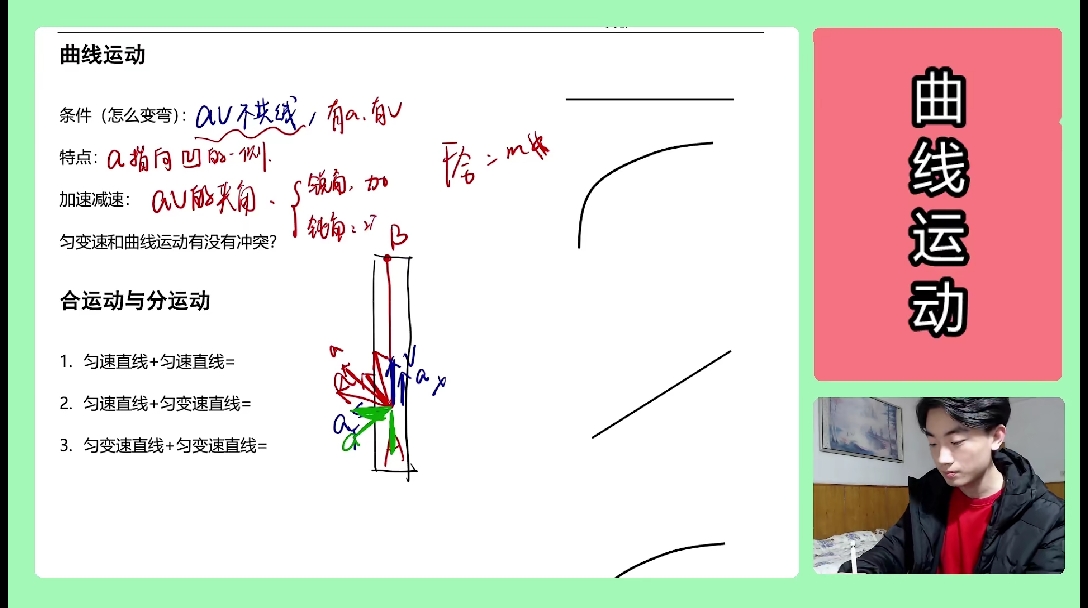 曲线运动
条件（怎么变弯）：av不共线，有a、有v
特点：a指向凹的一侧.
F合 = ma
加速减速：av的夹角、
锐角，加
钝角：减
匀变速和曲线运动有没有冲突?
B
合运动与分运动
1. 匀速直线+匀速直线=
2. 匀速直线+匀变速直线=
3. 匀变速直线+匀变速直线=
a
v
a
a
A
曲线运动